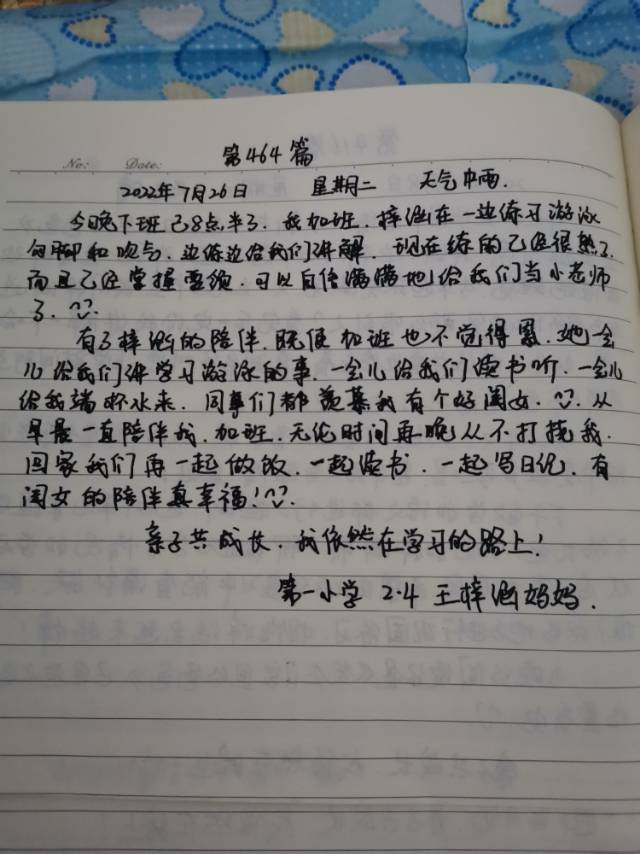 第464篇
No: Date:
2022年7月26日 星期二 天气中雨.
今晚下班已8点半了.我加班.梓涵在一边练习游泳
勾脚和吹气.边练边给我们讲解.现在练的已经很熟了.
而且已经掌握要领.可以自信满满地给我们当小老师
了.
有了梓涵的陪伴.既使加班也不觉得累.她一会
儿给我们讲学习游泳的事.一会儿给我们读书听.一会儿
给我端杯水来.同事们都羡慕我有个好闺女.从
早晨一直陪伴我.加班.无论时间再晚从不打扰我.
回家我们再一起做饭.一起读书.一起写日记.有
闺女的陪伴真幸福!
亲子共成长.我依然在学习的路上!
第一小学 2.4 王梓涵妈妈.